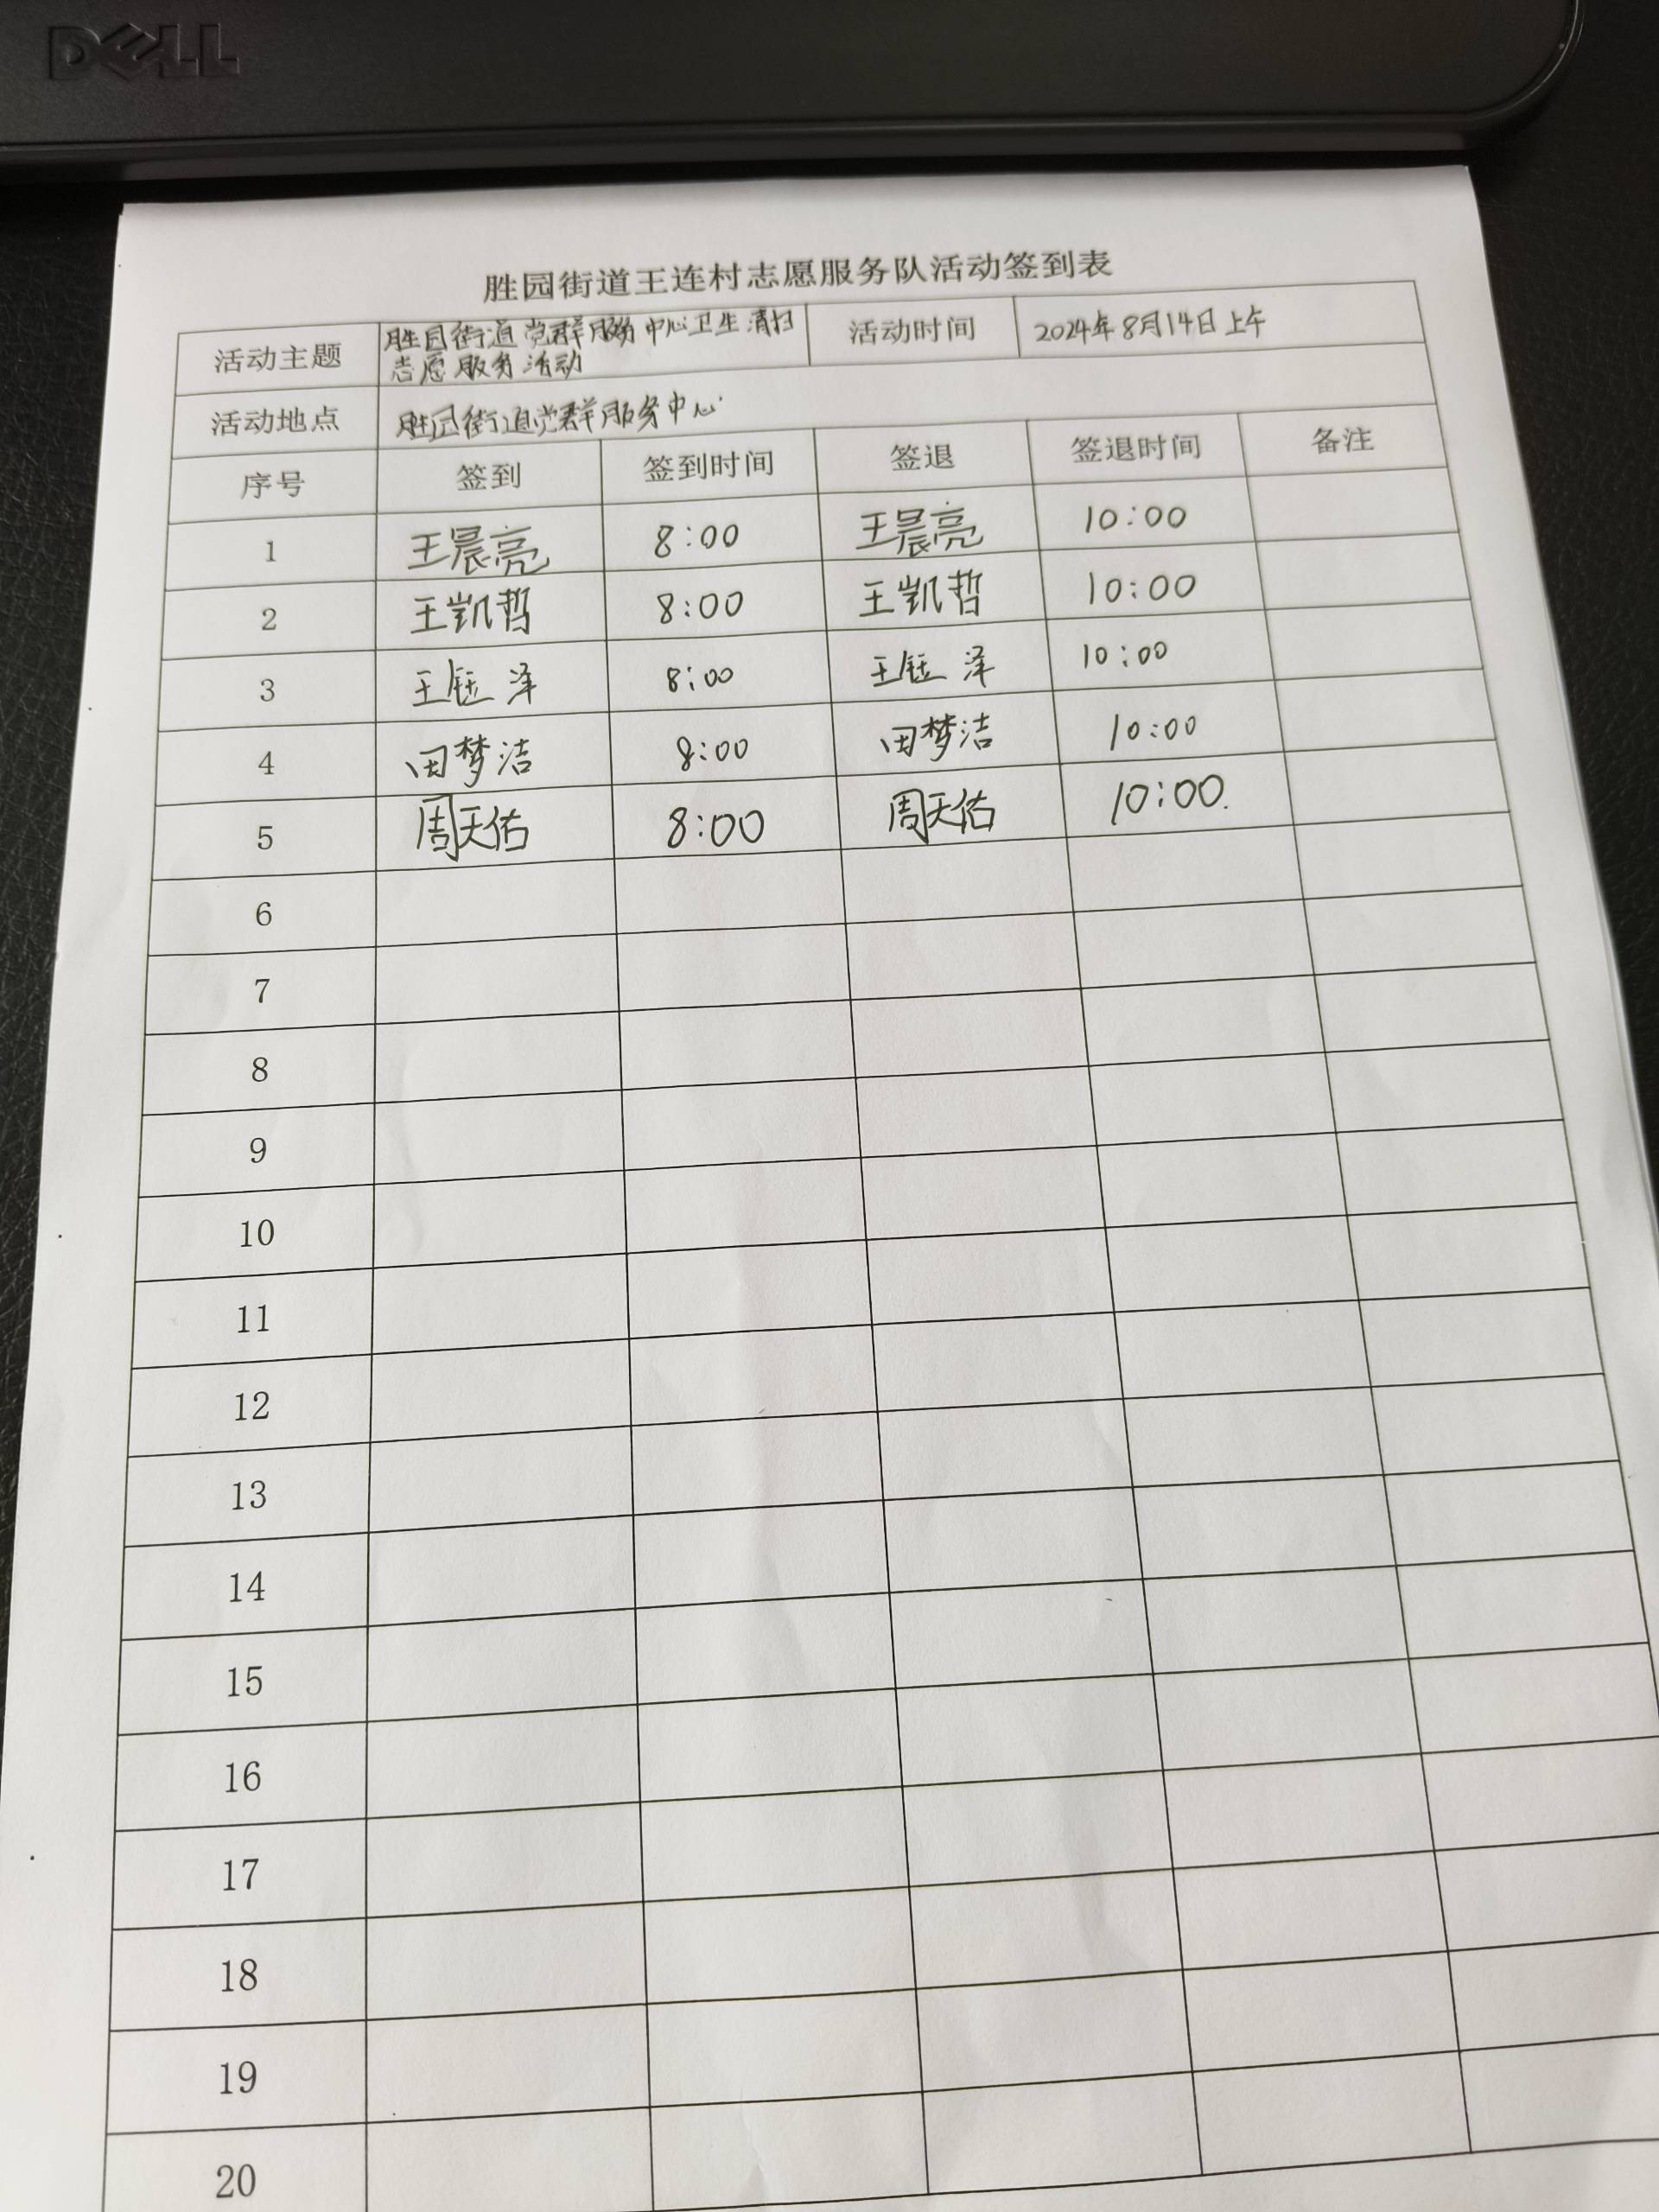 DELL
胜园街道王连村志愿服务队活动签到表
活动主题 胜园街道党群服务中心卫生清扫 活动时间 2024年8月14日上午
志愿服务活动
活动地点 胜园街道党群服务中心
序号 签到 签到时间 签退 签退时间 备注
1 王晨亮 8:00 王晨亮 10:00
2 王凯哲 8:00 王凯哲 10:00
3 王钰泽 8:00 王钰泽 10:00
4 田梦洁 8:00 田梦洁 10:00
5 周天佑 8:00 周天佑 10:00.
6
7
8
9
10
11
12
13
14
15
16
17
18
19
20